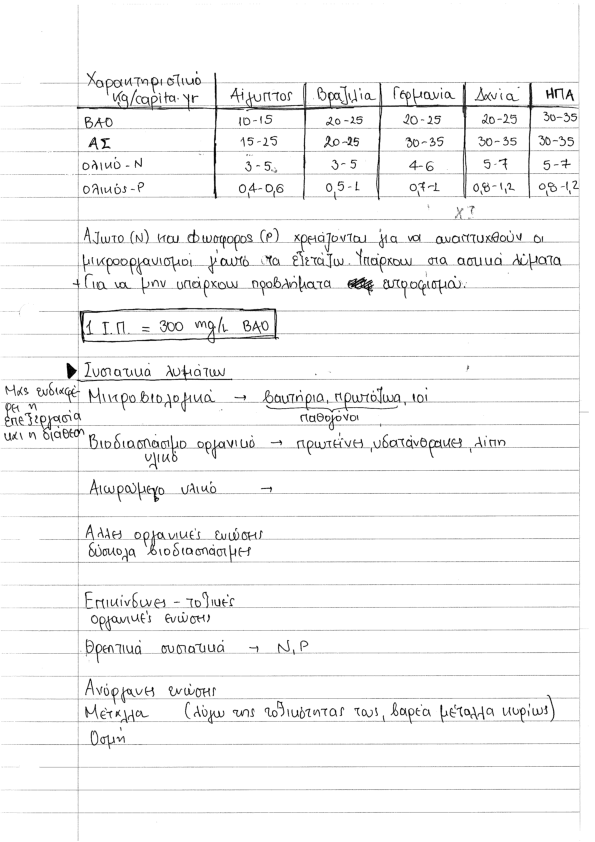 Χαρακτηριστικό
kg/capita·yr Αίγυπτος Βραζιλία Γερμανία Δανία ΗΠΑ
ΒΑΟ 10-15 20-25 20-25 20-25 30-35
ΑΣ 15-25 20-25 30-35 30-35 30-35
ολικό-Ν 3-5 3-5 4-6 5-7 5-7
ολικός-P 0,4-0,6 0,5-1 0,7-1 0,8-1,2 0,8-1,2
Άζωτο (Ν) και Φώσφορος (P) χρειάζονται για να αναπτυχθούν οι
μικροοργανισμοί γι'αυτό τα εξετάζω. Υπάρχουν στα αστικά λύματα
+ Για να μην υπάρχουν προβλήματα ευτροφισμού.
1 Ι.Π. = 300 mg/L ΒΑΟ
Συστατικά λυμάτων
Μας ενδιαφέ-
ρει η
επεξεργασία
και η διάθεση
Μικροβιολογικά → βακτήρια, πρωτόζωα, ιοί
παθογόνοι
Βιοδιασπάσιμο οργανικό → πρωτεΐνες, υδατάνθρακες, λίπη
υλικό
Αιωρούμενο υλικό →
Άλλες οργανικές ενώσεις
δύσκολα βιοδιασπάσιμες
Επικίνδυνες - τοξικές
οργανικές ενώσεις
Θρεπτικά συστατικά → Ν, P
Ανόργανες ενώσεις
Μέταλλα (λόγω της τοξικότητας τους, βαρέα μέταλλα κυρίως)
Οσμή